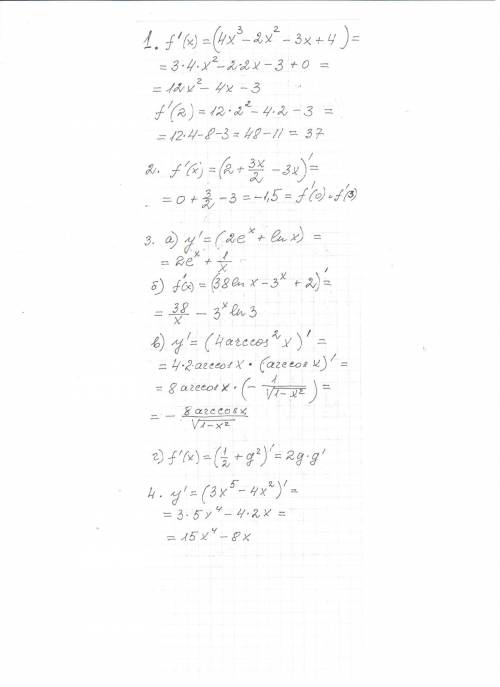 1. f'(x) = (4x³ - 2x² - 3x + 4)' =
= 3·4·x² - 2·2x - 3 + 0 =
= 12x² - 4x - 3
f'(2) = 12·2² - 4·2 - 3 =
= 12·4 - 8 - 3 = 48 - 11 = 37
2. f'(x) = (2 + 3x/2 - 3x)' =
= 0 + 3/2 - 3 = -1,5 = f'(0) = f'(3)
3. а) y' = (2eˣ + ln x) =
= 2eˣ + 1/x
б) f'(x) = (38 ln x - 3ˣ + 2)' =
= 38/x - 3ˣ ln 3
в) y' = (4 arccos² x)' =
= 4·2 arccos x · (arccos x)' =
= 8 arccos x · (- 1/√(1-x²)) =
= - 8 arccos x/√(1-x²)
г) f'(x) = (1/2 + g²)' = 2g·g'
4. y' = (3x⁵ - 4x²)' =
= 3·5x⁴ - 4·2x =
= 15x⁴ - 8x